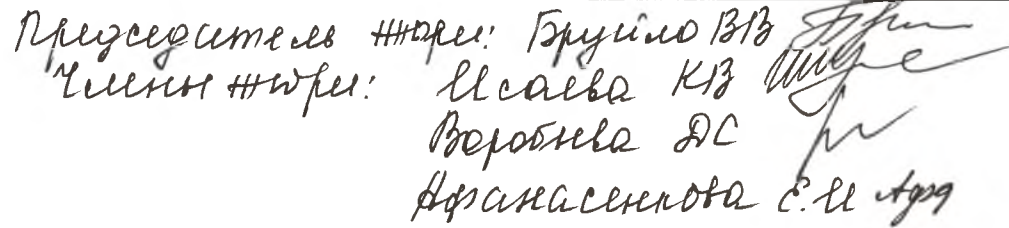 Председатель жюри: Бруйло ВВ
Члены жюри: Исаева КВ
Воробьева ДС
Афанасенкова Е.И